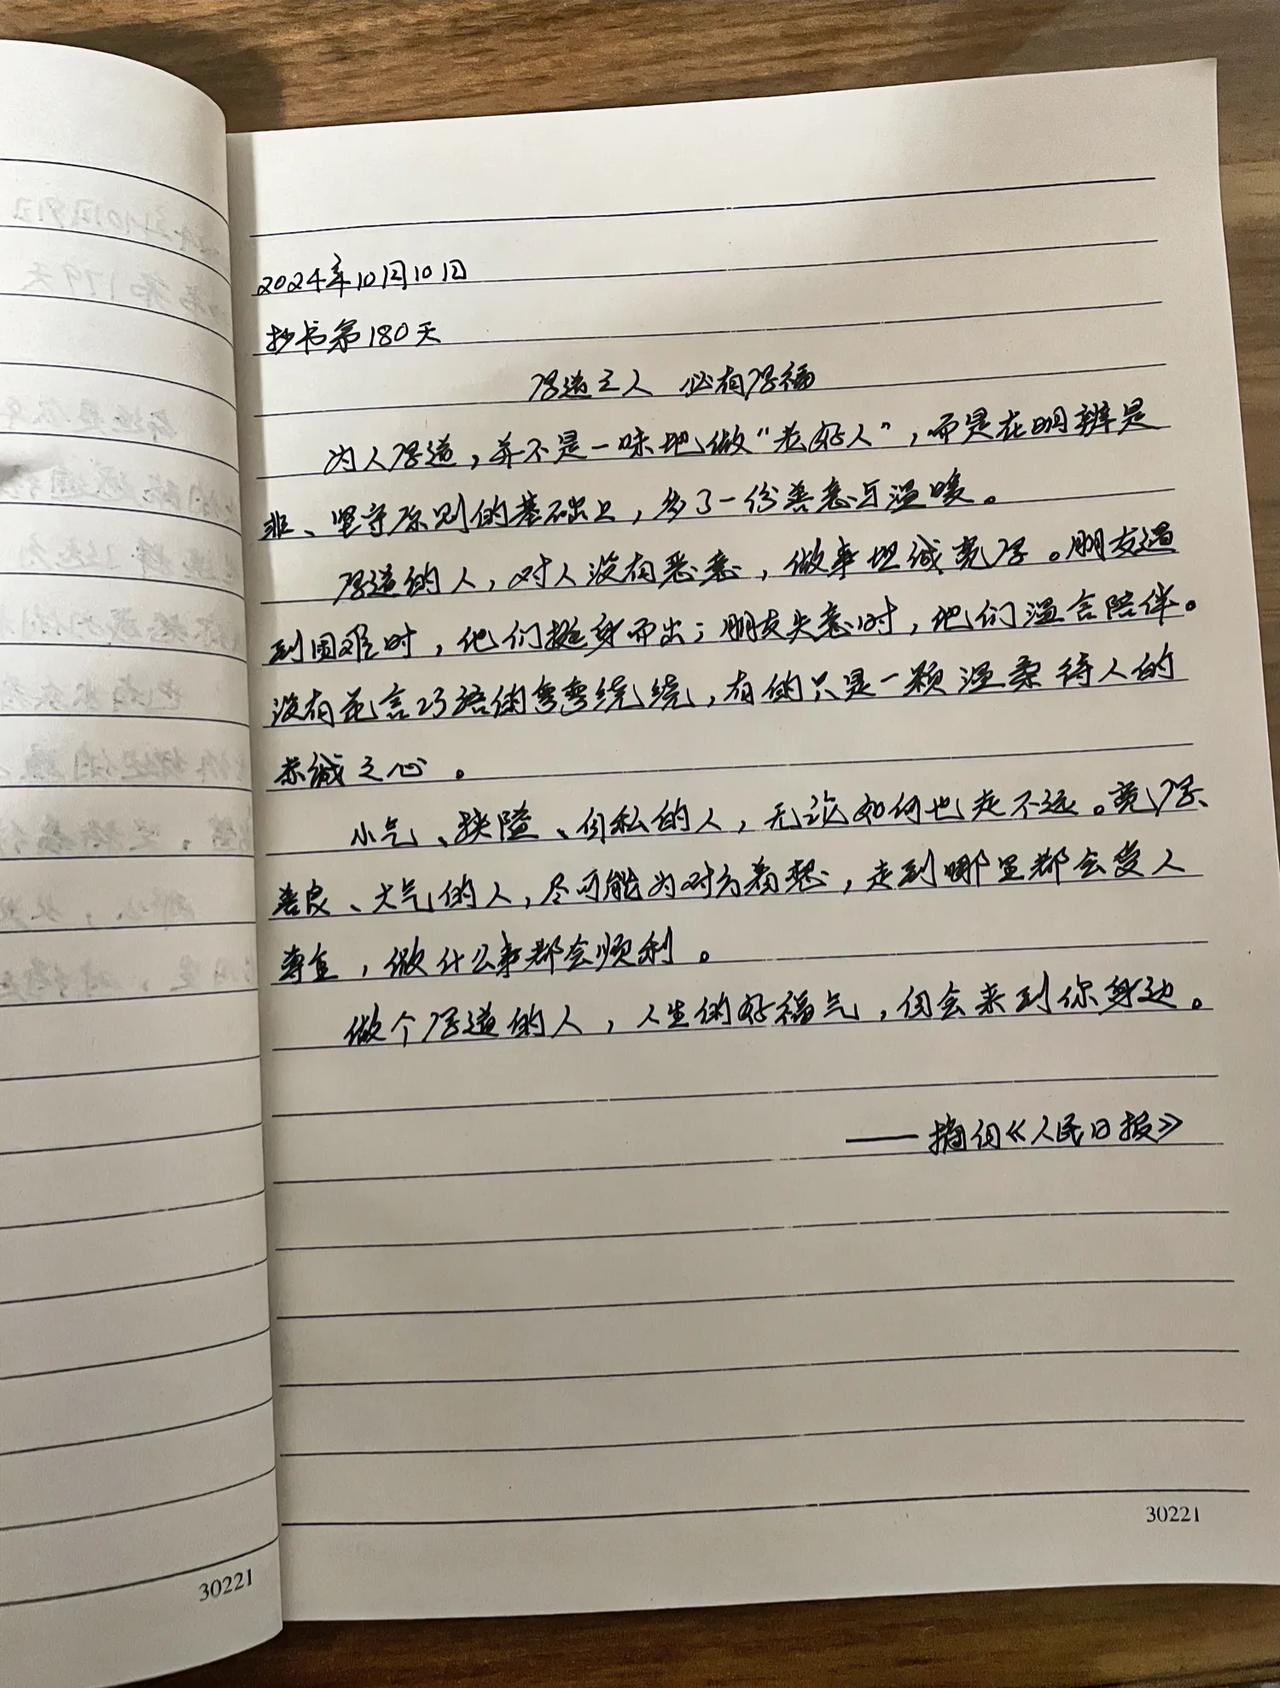 2024年10月10日
抄书第180天
厚道之人 必有厚福
为人厚道，并不是一味地做“老好人”，而是在明辨是
非、坚守原则的基础上，多了一份善意与温暖。
厚道的人，对人没有恶意，做事坦诚宽厚。朋友遇
到困难时，他们挺身而出；朋友失意时，他们温言陪伴。
没有花言巧语的弯弯绕绕，有的只是一颗温柔待人的
赤诚之心。
小气、狭隘、自私的人，无论如何也走不远。宽厚、
善良、大气的人，尽可能为对方着想，走到哪里都会受人
尊重，做什么事都会顺利。
做个厚道的人，人生的好福气，自会来到你身边。
——摘自《人民日报》
30221
30221